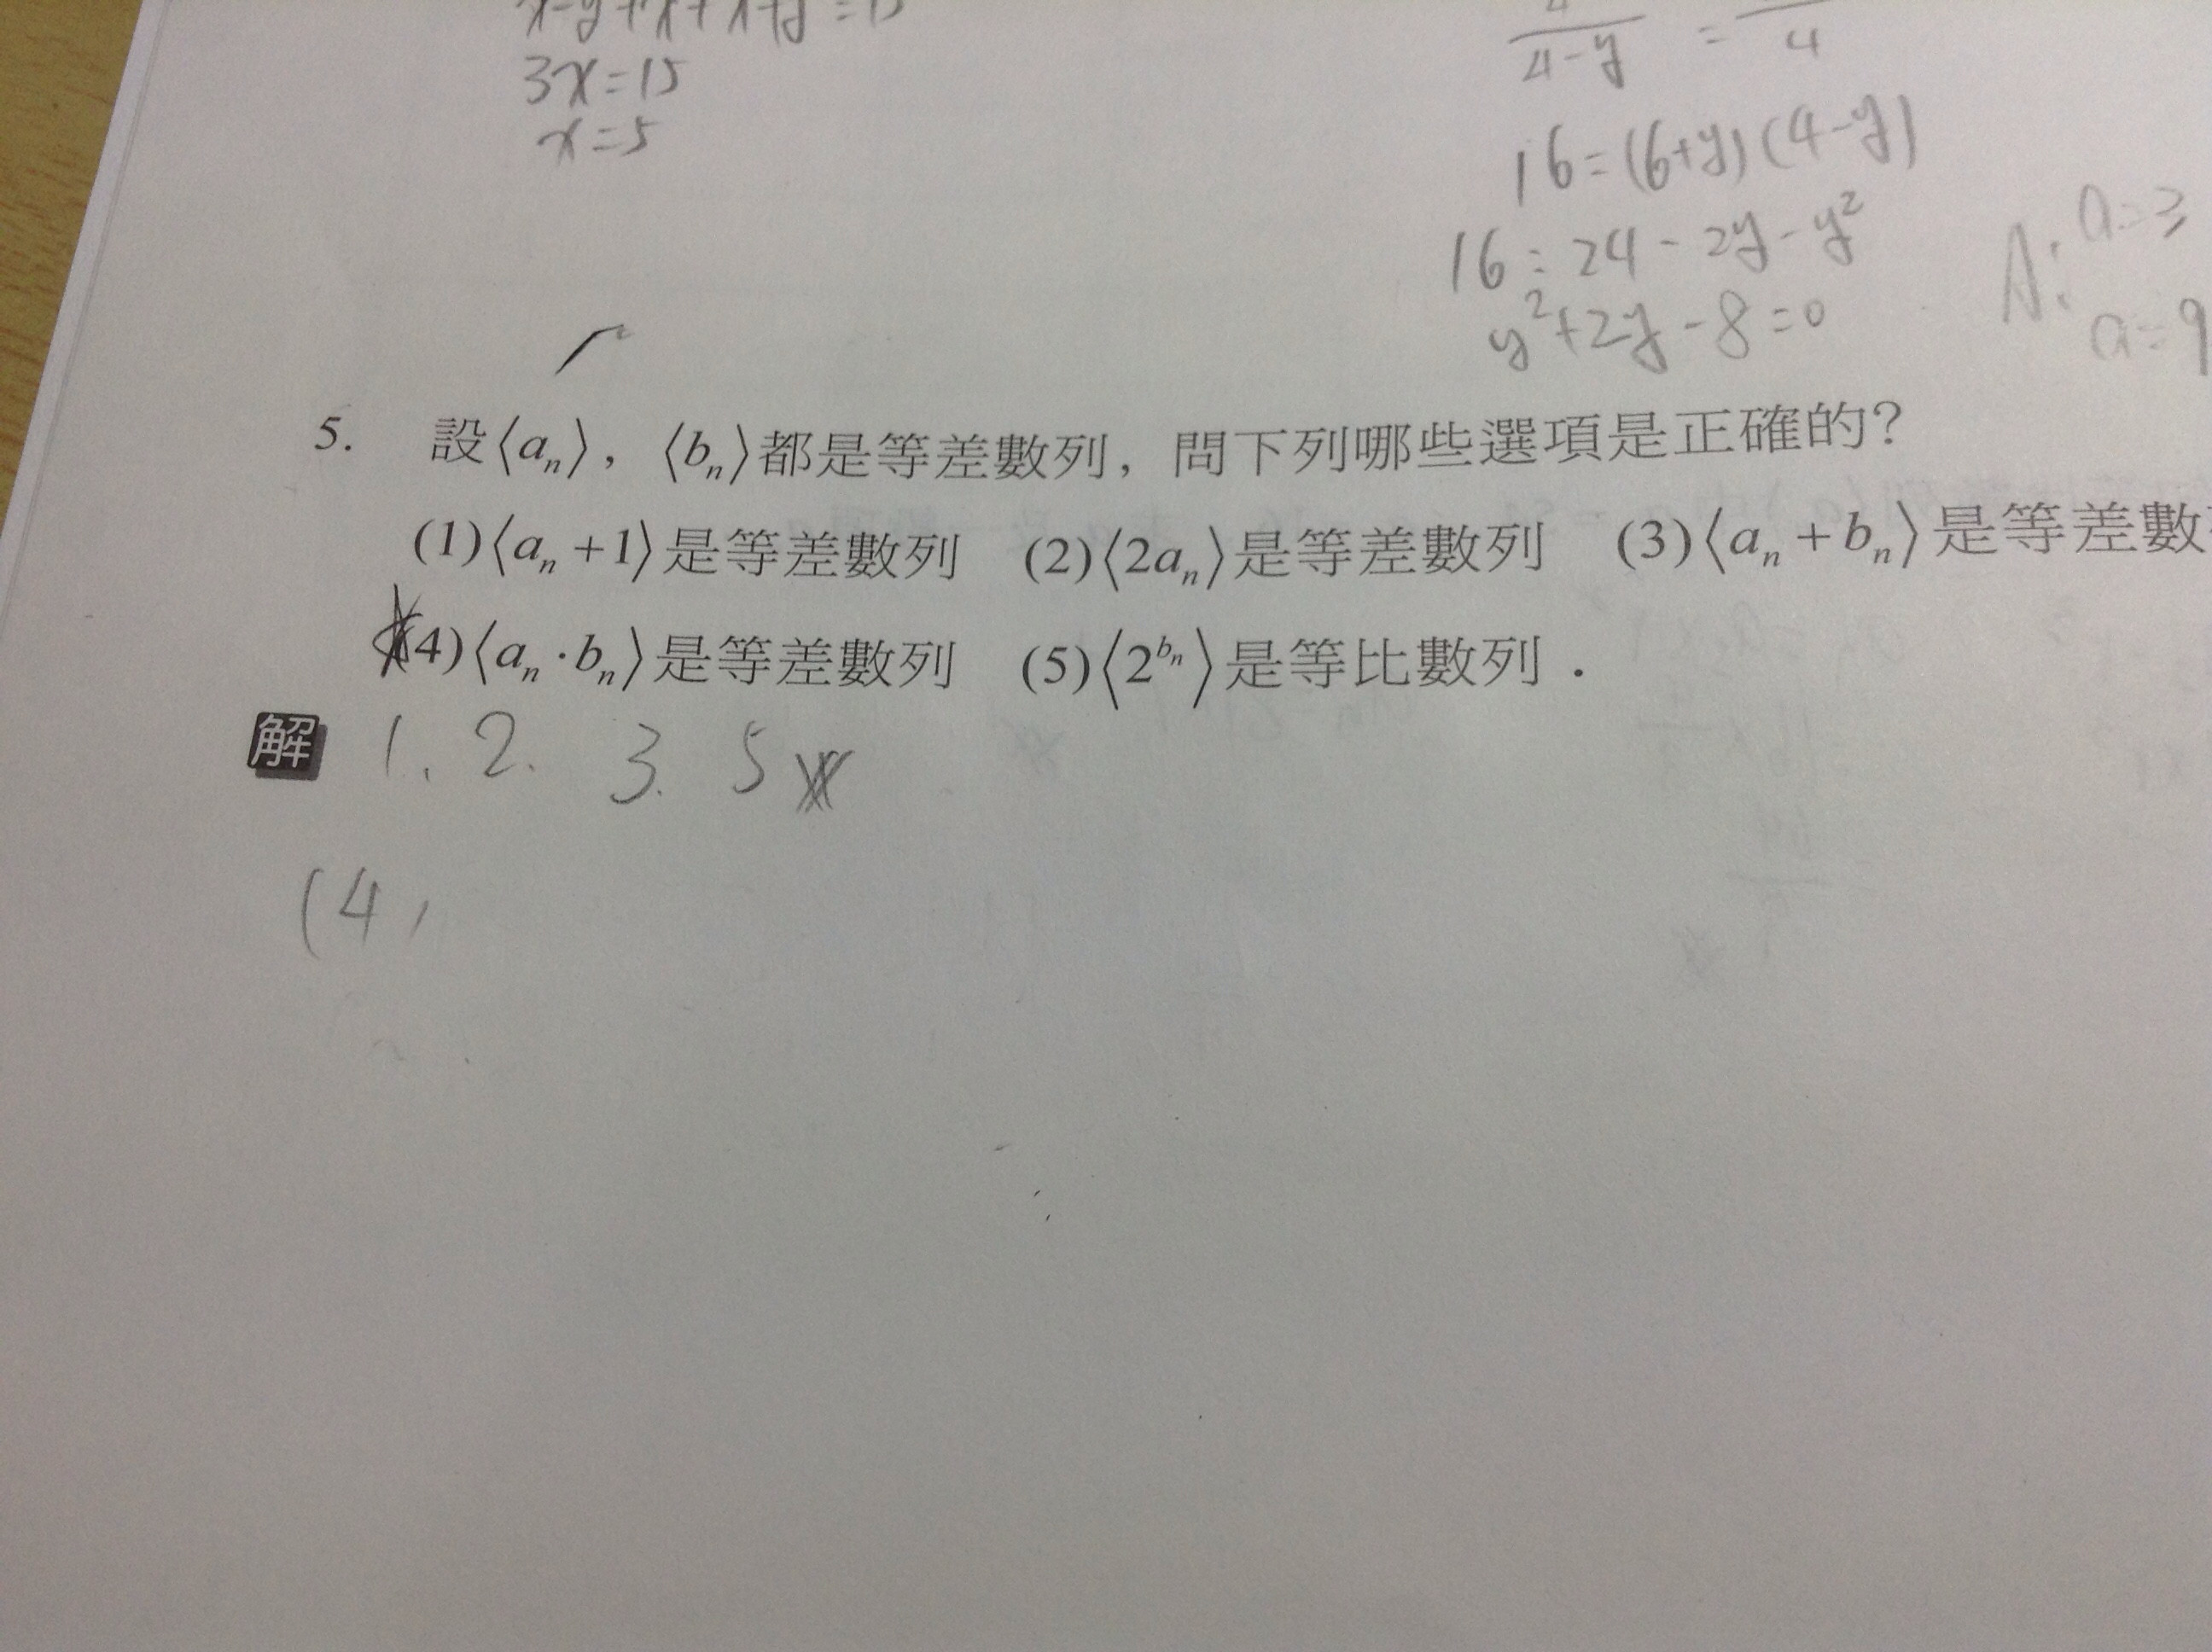 x-y+x+x+y=15
3x=15
x=5
4-y = 4
16=(6+y)(4-y)
16=24-2y-y²
y²+2y-8=0
A: a=3
a=9
5. 設⟨aₙ⟩,⟨bₙ⟩都是等差數列,問下列哪些選項是正確的?
(1)⟨aₙ+1⟩是等差數列 (2)⟨2aₙ⟩是等差數列 (3)⟨aₙ+bₙ⟩是等差數
(4)⟨aₙ·bₙ⟩是等差數列 (5)⟨2^{bₙ}⟩是等比數列.
解 1. 2. 3. 5
(4,